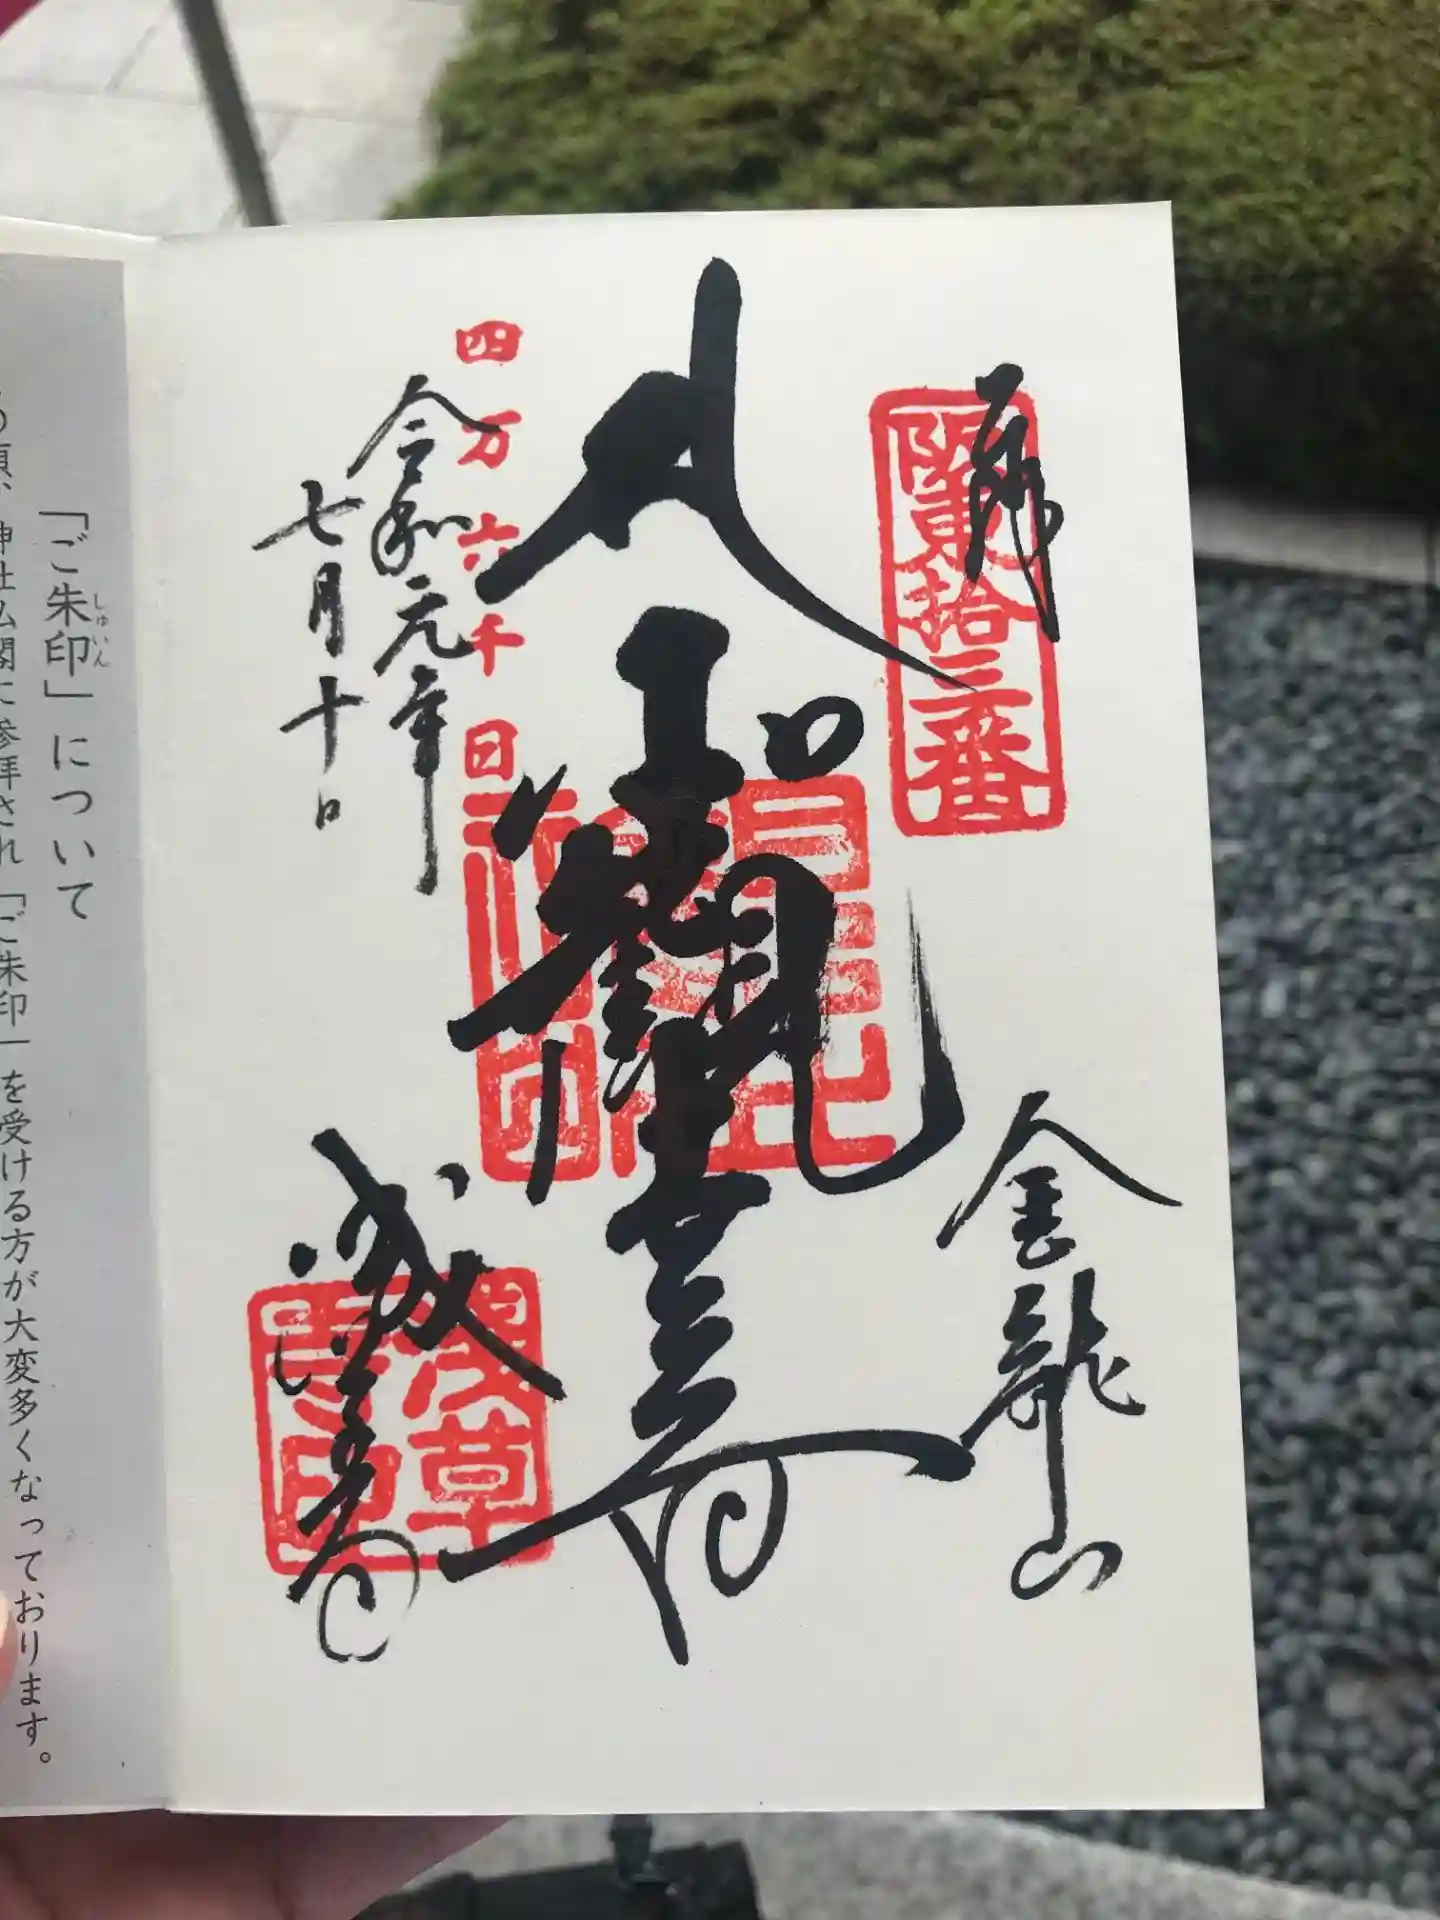 奉拝
阪東拾三番
金龍山
聖観世音
四万六千日
令和元年
七月十日
浅草寺
浅草寺印
「ご朱印」について
神社仏閣に参拝され「ご朱印」を受ける方が大変多くなっております。